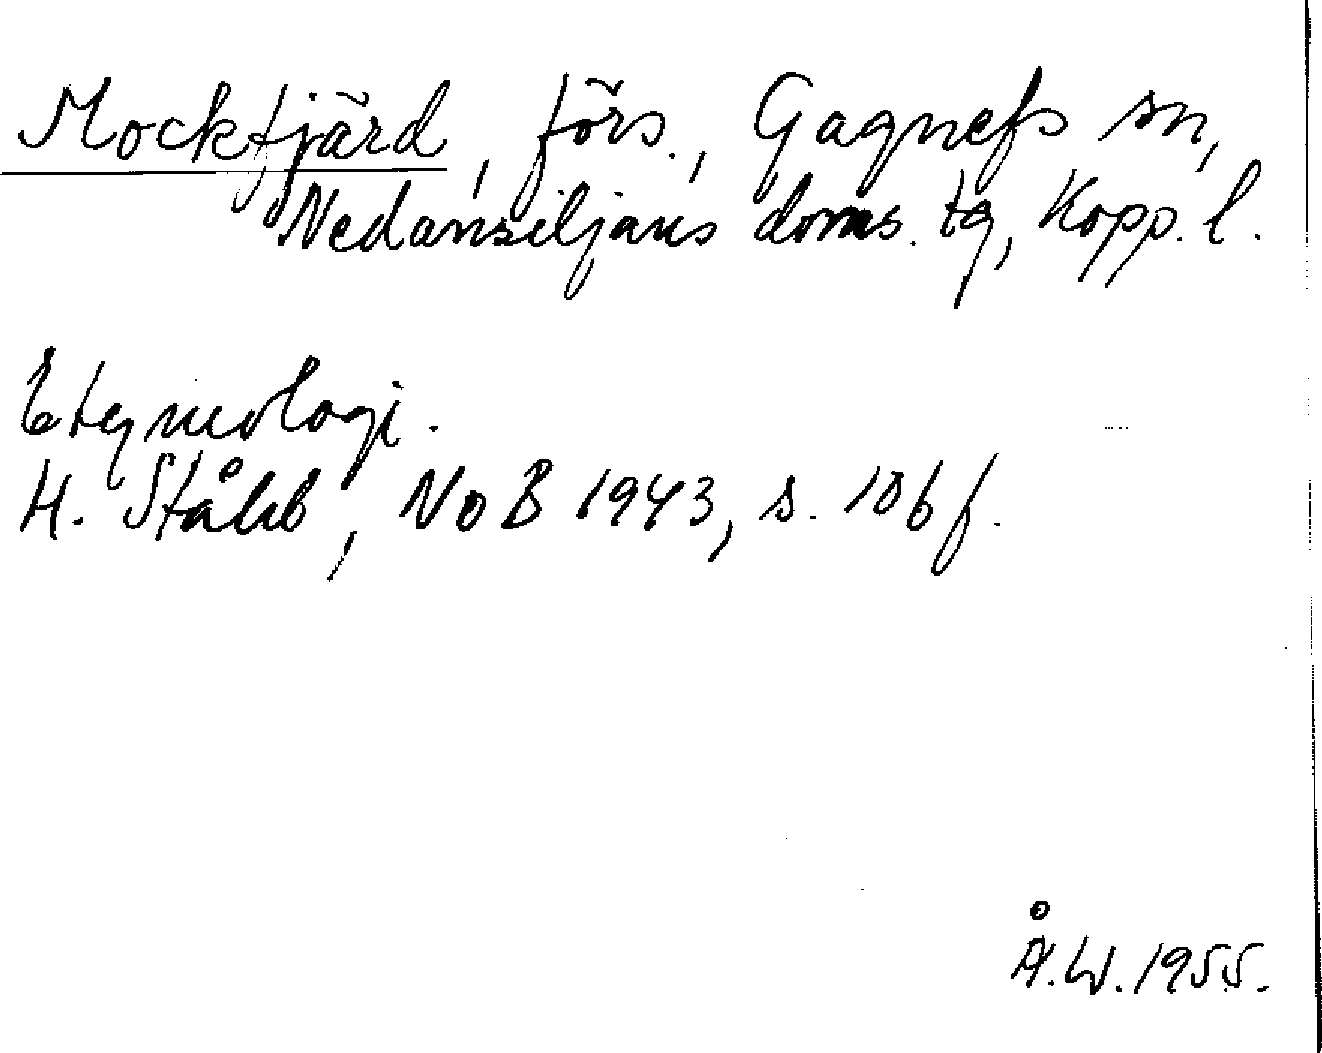 Mockfjärd, förs., Gagnefs sn,
Nedansiljans doms. tg, Kopp. l.
Etymologi.
H. Ståhl, NoB 1943, s. 106 f.
Å.W. 1955.